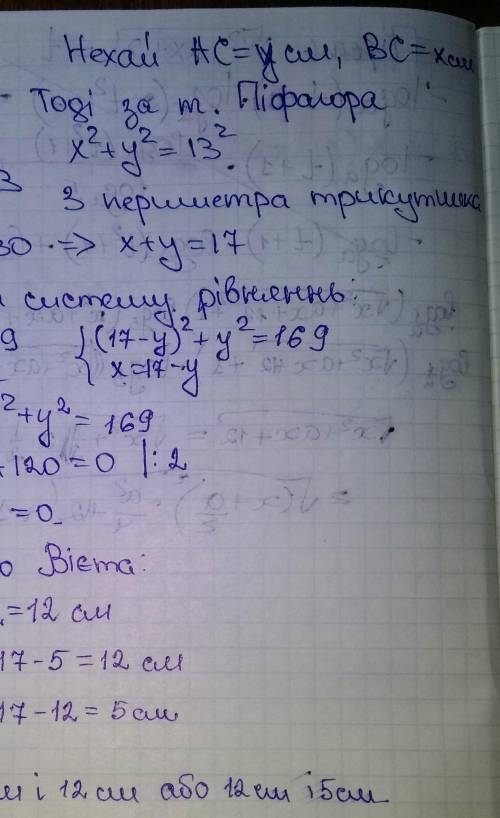 Нехай AC=y см, BC=x см
Тоді за т. Піфагора
x²+y²=13²
З периметра трикутника
30 => x+y=17
систему рівняннь:
9 {(17-y)²+y²=169
x=17-y
²+y²=169
+120=0 |:2
=0
Вієта:
=12 см
17-5=12 см
17-12=5 см
м і 12 см або 12 см і 5 см